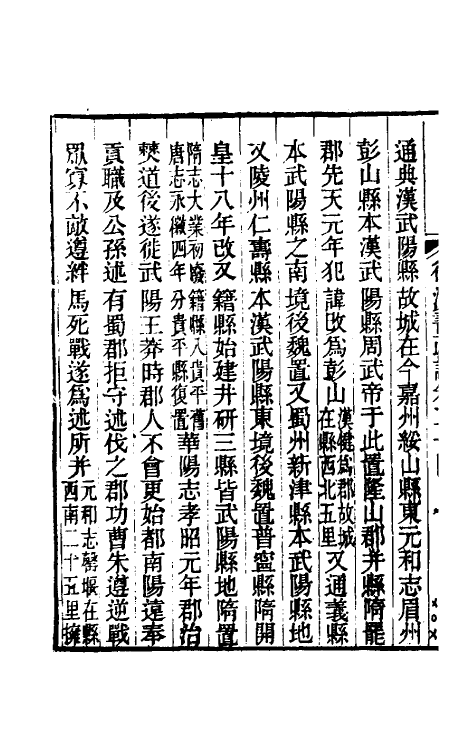 通典漢武陽縣故城在今嘉州綏山縣東元和志眉州
彭山縣本漢武陽縣周武帝于此置隆山郡并縣隋罷
郡先天元年犯諱改為彭山漢犍為郡故城在縣西北五里又通義縣
本武陽縣之南境後魏置又蜀州新津縣本武陽縣地
又陵州仁壽縣本漢武陽縣東境後魏置普寧縣隋開
皇十八年改又籍縣始建井研三縣皆武陽縣地隋置
隋志大業初廢籍縣入貴平舊唐志永徽四年分貴平縣復置華陽志孝昭元年郡治
僰道後遂徙武陽王莽時郡人不會更始都南陽遠奉
貢職及公孫述有蜀郡拒守述伐之郡功曹朱遵逆戰
眾寡不敵遵絆馬死戰遂為述所并元和志鼛堰在縣西南二十五里擁